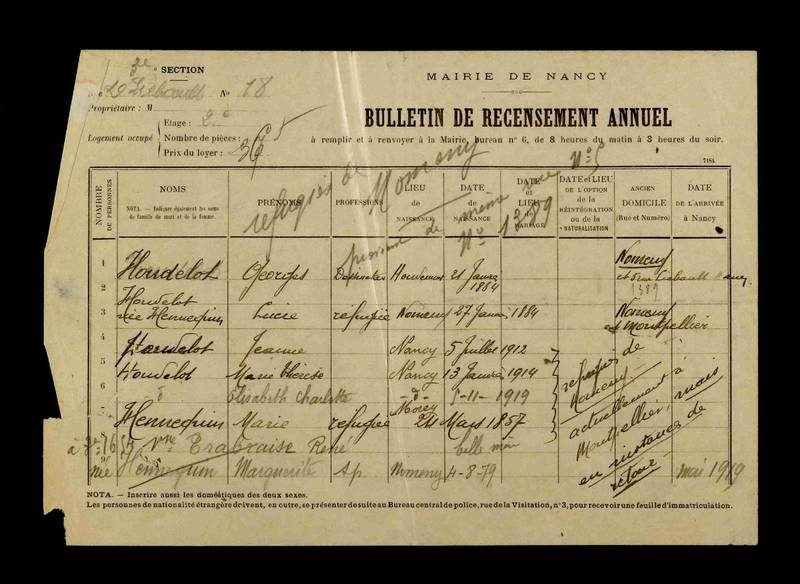 3e SECTION
No 18
Propriétaire : M
Logement occupé
Etage : 2e
Nombre de pièces : 5
Prix du loyer :
MAIRIE DE NANCY
BULLETIN DE RECENSEMENT ANNUEL
à remplir et à renvoyer à la Mairie, bureau n° 6, de 8 heures du matin à 3 heures du soir.
7184
réfugiés de Nomeny
No 5
No 1389
NOMBRE DE PERSONNES
NOMS
NOTA. — Indiquer également les noms de famille du mari et de la femme.
PRÉNOMS
PROFESSIONS
LIEU de NAISSANCE
DATE de NAISSANCE
DATE et LIEU de MARIAGE
DATE et LIEU DE L'OPTION de la RÉINTÉGRATION ou de la NATURALISATION
ANCIEN DOMICILE (Rue et Numéro)
DATE DE L'ARRIVÉE à Nancy
1 Houdelot Georges Dessinateur 21 Janvier 1864 Nomeny
1389
2 Houdelot
3 née Hennequin Lucie réfugiée Nomeny 27 Janvier 1884 Nomeny et Montpellier
4 Houdelot Jeanne Nancy 5 Juillet 1912
5 Houdelot Marie Thérèse Nancy 13 Janvier 1914
6 Elisabeth Charlotte 5-11-1919
7 Hennequin Marie réfugiée 24 Mars 1857
Vve Trabraise René belle mère
née Hennequin Marguerite Sp. Nomeny 4-8-79 mai 1919
réfugiés de Nomeny actuellement à Montpellier, mais en instance de retour
NOTA. — Inscrire aussi les domestiques des deux sexes.
Les personnes de nationalité étrangère doivent, en outre, se présenter de suite au Bureau central de police, rue de la Visitation, n° 3, pour recevoir une feuille d'immatriculation.